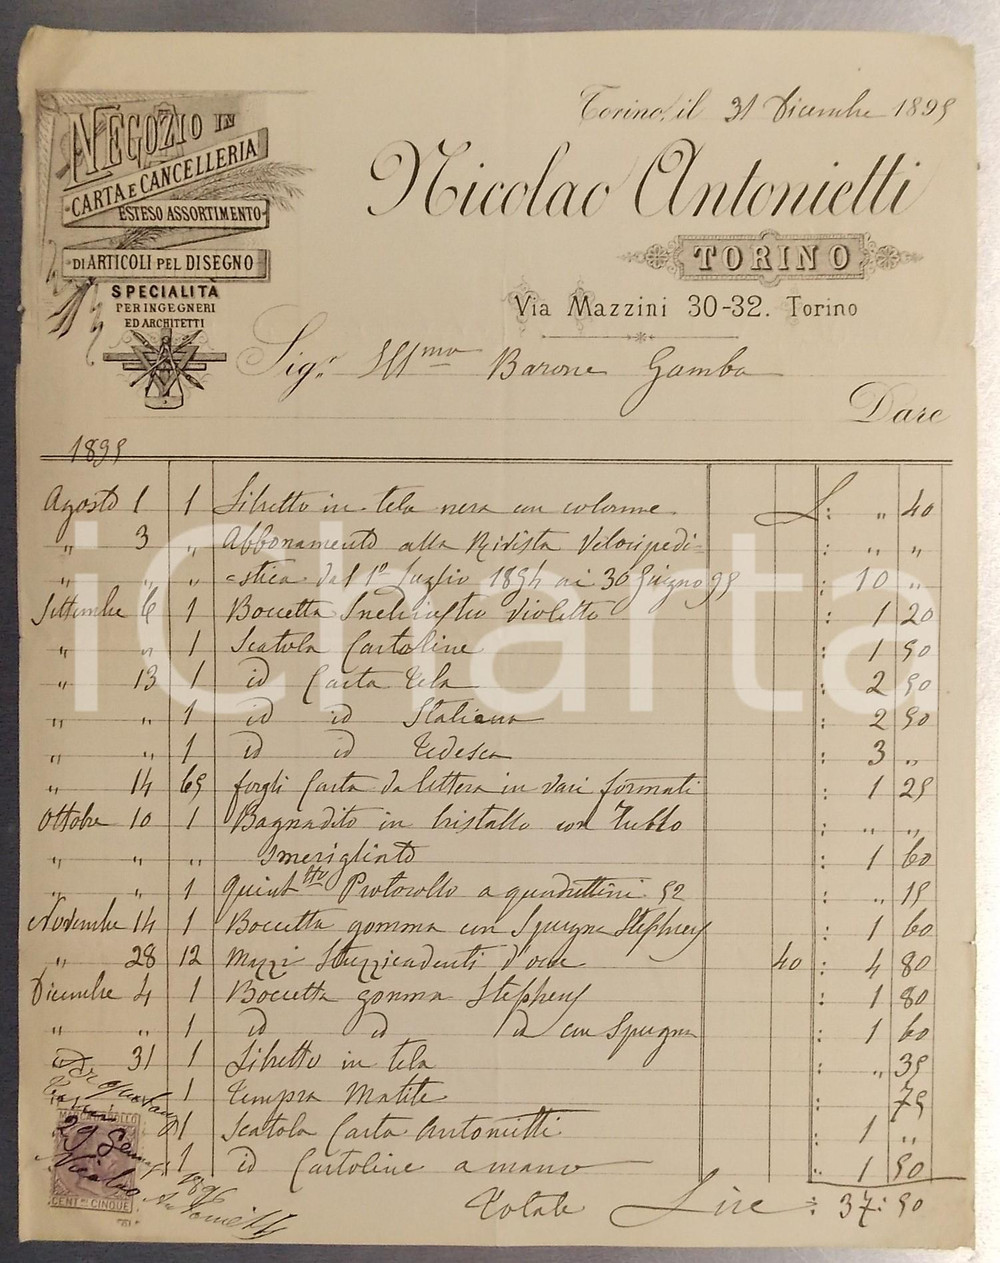 Torino, il 31 Dicembre 1895
NEGOZIO IN
CARTA E CANCELLERIA
ESTESO ASSORTIMENTO
DI ARTICOLI PEL DISEGNO
SPECIALITÀ
PER INGEGNERI
ED ARCHITETTI
Nicolao Antonietti
TORINO
Via Mazzini 30-32. Torino
Sigr. Illmo Barone Gamba
Dare
1895
Agosto 1 1 Libretto in tela nera con colonne L: " 40
" 3 " Abbonamento alla Rivista Velocipedi= : " "
" " " =stica dal 1º Luglio 1894 ai 30 Giugno 95 : 10 "
Settembre 6 1 Boccetta Inchiostro Violetto : 1 20
" " 1 Scatola Cartoline : 1 50
" 13 1 id Carta Tela : 2 50
" " 1 id id Italiana : 2 50
" " 1 id id Tedesca : 3 "
" 14 65 fogli Carta da lettera in vari formati : 1 25
Ottobre 10 1 Bagnadito in Cristallo con Tubbo : " "
" " " smerigliato : 1 60
" " 1 Quintto Protocollo a quadrettini 52 : " 15
Novembre 14 1 Boccetta gomma con Spugna Stephens : 1 60
" 28 12 Mazzi Stuzzicadenti d'oca 40 : 4 80
Dicembre 4 1 Boccetta gomma Stephens : 1 80
" " 1 id id id con Spugna : 1 60
" 31 1 Libretto in tela : " 35
1 Tempra Matite : 75
1 Scatola Carta Antonietti : 1 "
1 id Cartoline a mano : 1 50
Totale Lire : 37: 50
29 Genn 1896
Nicolao Antonietti
CENT. CINQUE
iCharta